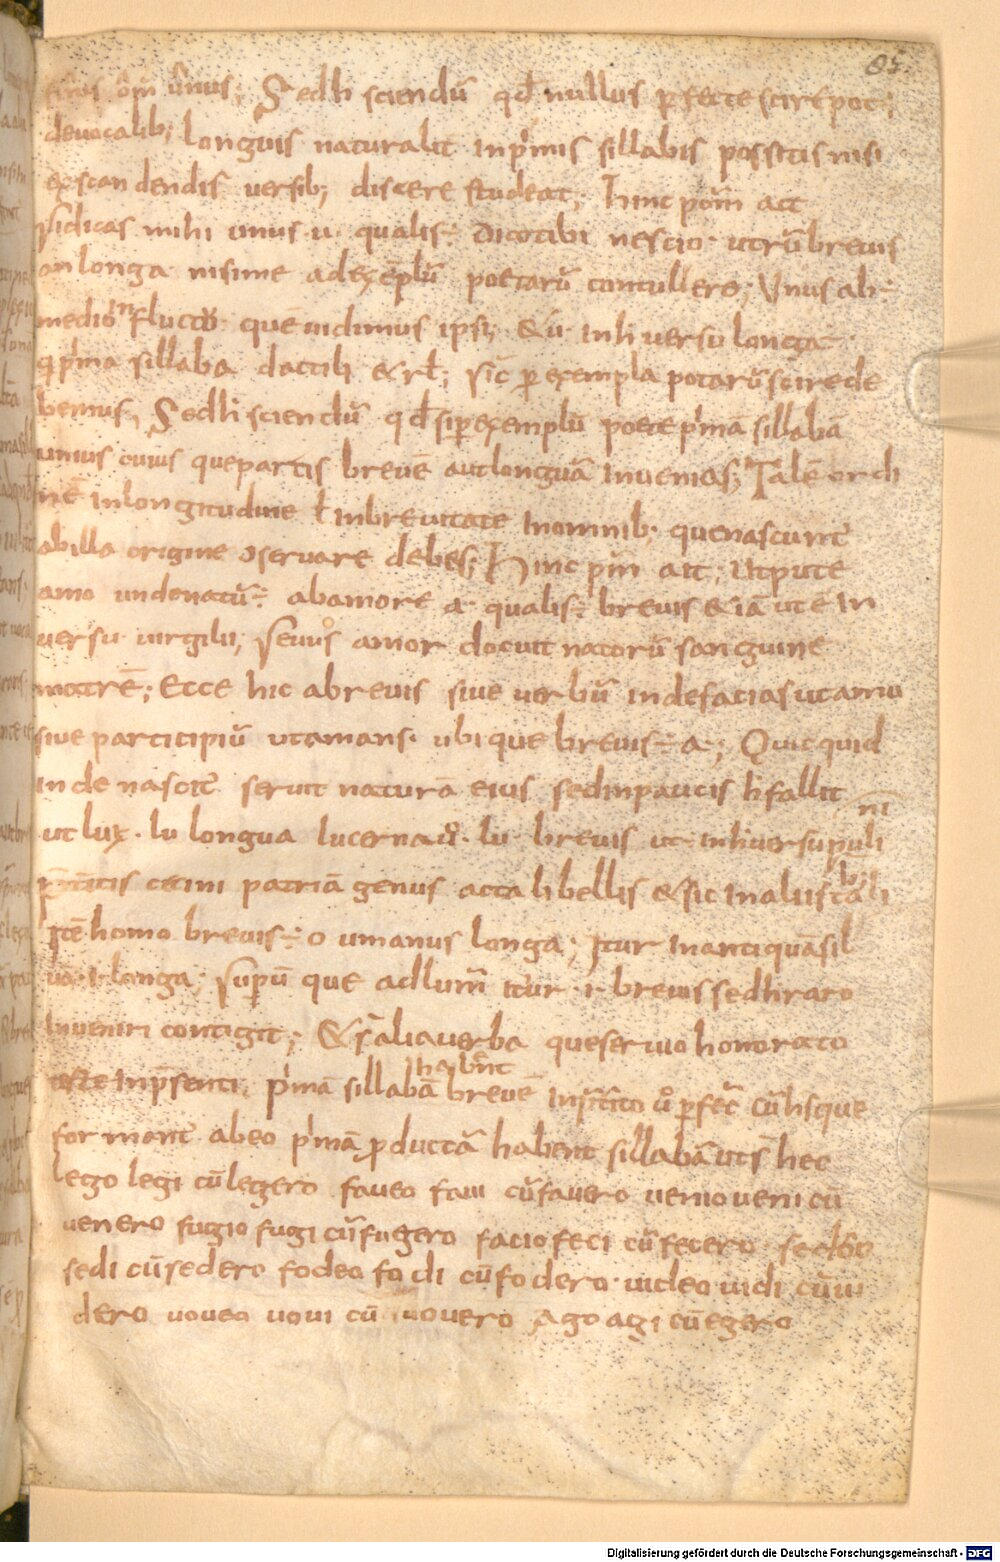 85.
om̅ unus; Sed h sciendu̅ qd̅ nullus perfecte scire pot;
de uocalib; longuis naturalit̅ in primis sillabis possitis nisi
ex scan dendis uersib; discere studeat; hinc pom̅ act
si dicas mihi unus u qualis÷ dico tibi nescio utru̅ breuis
an longa nisi me ad exe̅plu̅ poetaru̅ contullero; Unus ab÷
medio in fluctu que̅ uidimus ipsi; & u in h uersu longa÷
q prima sillaba dactili & rl̅; sic per exempla potaru̅ scire de
bemus; Sed h sciendu̅ qd̅ si per exemplu̅ poete prima̅ sillaba̅
unius cuius que partis breue̅ aut longua̅ inuenias; Tale̅ ordi
ne̅ in longitudine ł in breuitate in omnib; que nascunt̅
ab illa origine ɔseruare debes; Hinc pom̅ ait; Ut pute
amo unde natu̅÷ ab amore a qualis÷ breuis & ia̅ ut e̅ in
uersu uirgilii; Seuus amor docuit natoru̅ sanguine
matre̅; Ecce hic a breuis siue uerbu̅ inde facias ut amo
siue participiu̅ ut amans ubique breuis÷ a; Quicquid
inde nascit̅ seruit natura̅ eius sed in paucis h fallit
ut lux lu longua lucerna u̅ lu breuis ut in h uersu puli ni̅
cecini patria̅ genus acta libellis & sic in aliis
Ite̅ homo breuis÷ o umanus longa; Itur in antiqua̅ sil
ua̅ i longa; supu̅ que ad lum̅ itur i breuis sed h raro
inueniri contigit; & alia uerba que seruio honorato
teste in presenti prima̅ sillaba̅ breue̅ habent in pret̅ito u̅ perfec̅ cu̅ hisque
formant̅ ab eo prima̅ producta̅ habent sillaba̅ ut s̅ hec
lego legi cu̅ legero faueo faui cu̅ fauero uenio ueni cu̅
uenero fugio fugi cu̅ fugero facio feci cu̅ fecero sedeo
sedi cu̅ sedero fodeo fodi cu̅ fodero uideo uidi cu̅ ui
dero moueo moui cu̅ mouero ago agi cu̅ egero
Digitalisierung gefördert durch die Deutsche Forschungsgemeinschaft - DFG